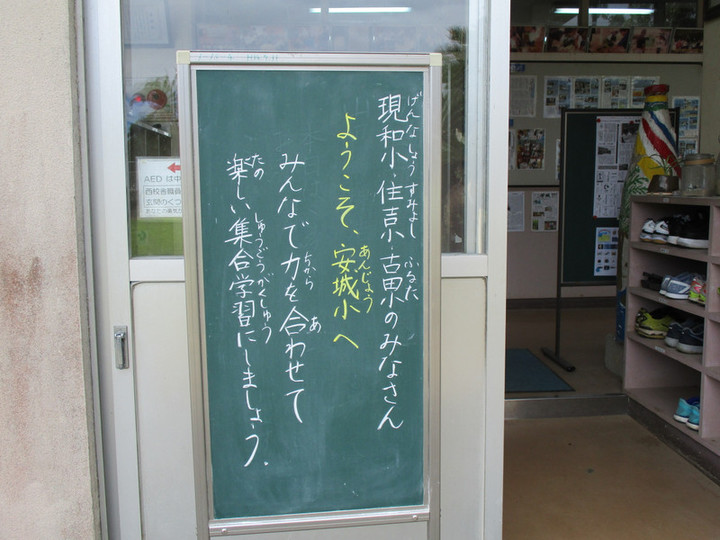 現和小・住吉小・古田小のみなさん
げんなしょう すみよし ふなた
ようこそ、安城小へ
あんじょう
みんなで力を合わせて
ちから あ
楽しい集合学習にしましょう。
たの しゅうごうがくしゅう
AED は中
西校舎職員
玄関のくつ